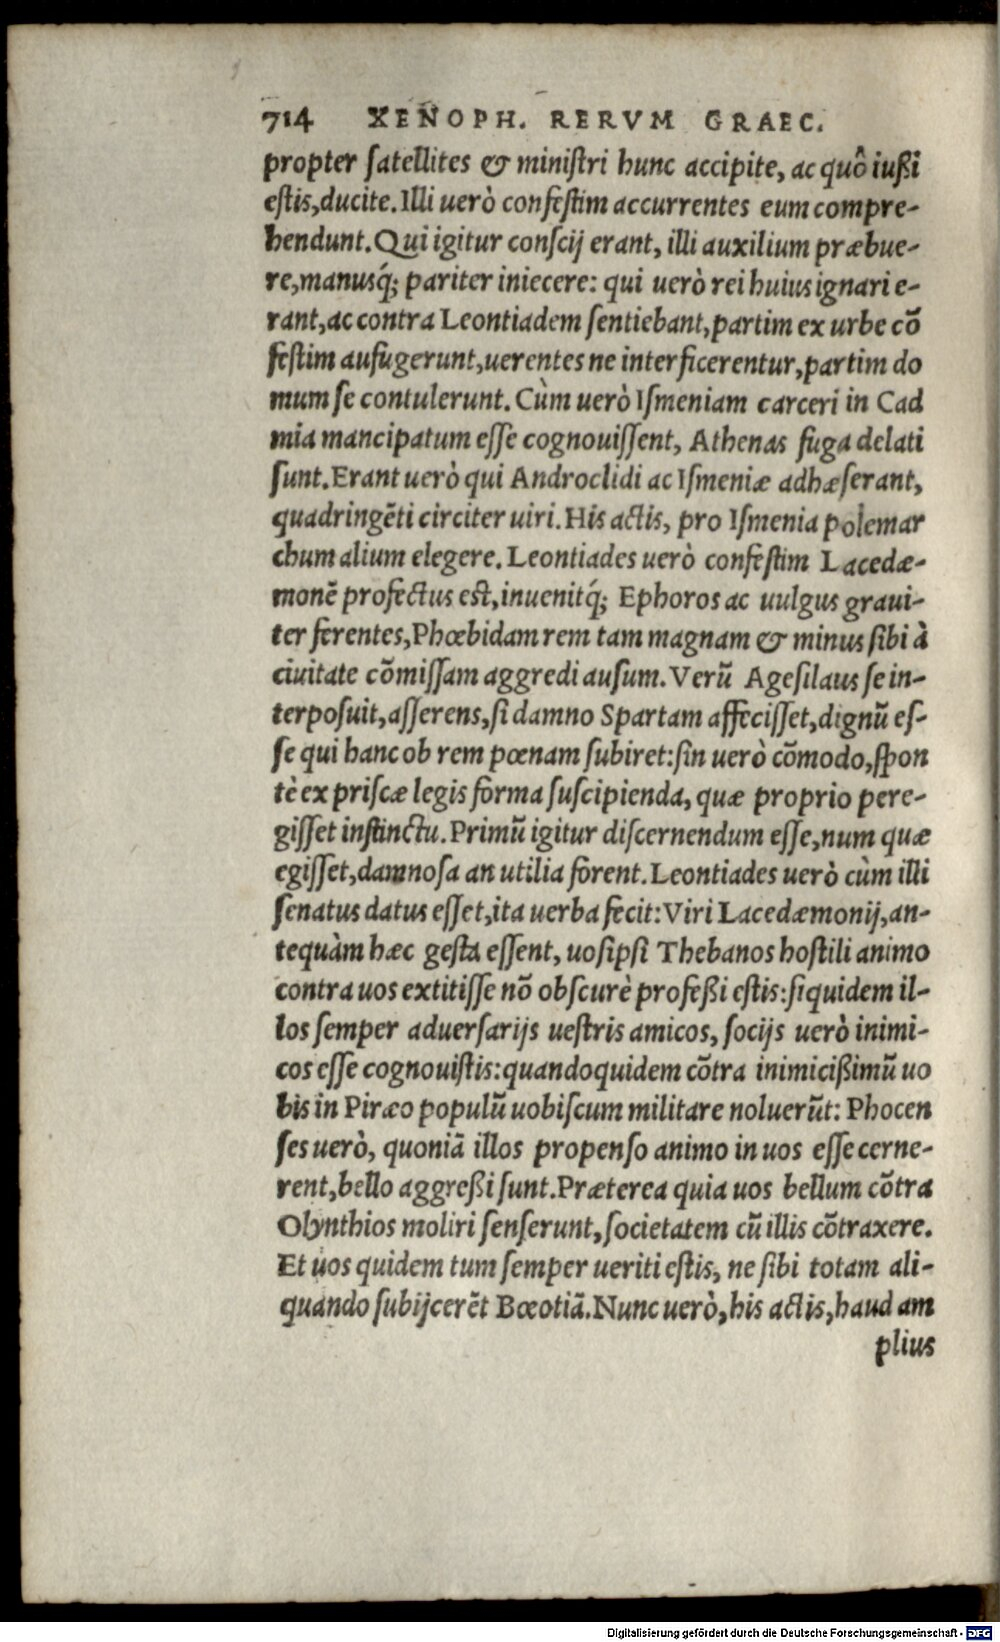 714 XENOPH. RERVM GRAEC.
propter ſatellites & miniſtri hunc accipite, ac quô iußi
eſtis, ducite. Illi uerò confeſtim accurrentes eum compre-
hendunt. Qui igitur conſcij erant, illi auxilium præbue-
re, manusq́; pariter iniecere: qui uerò rei huius ignari e-
rant, ac contra Leontiadem ſentiebant, partim ex urbe cō
feſtim aufugerunt, uerentes ne interficerentur, partim do
mum ſe contulerunt. Cùm uerò Iſmeniam carceri in Cad
mia mancipatum eſſe cognouiſſent, Athenas fuga delati
ſunt. Erant uerò qui Androclidi ac Iſmeniæ adhæſerant,
quadringēti circiter uiri. His actis, pro Iſmenia polemar
chum alium elegere. Leontiades uerò confeſtim Lacedæ-
monē profectus est, inuenitq́; Ephoros ac uulgus graui-
ter ferentes, Phœbidam rem tam magnam & minus ſibi à
ciuitate cōmiſſam aggredi auſum. Verū Ageſilaus ſe in-
terpoſuit, aſſerens, ſi damno Spartam affeciſſet, dignū eſ-
ſe qui hanc ob rem pœnam ſubiret: ſin uerò cōmodo, ſpon
tè ex priſcæ legis forma ſuſcipienda, quæ proprio pere-
giſſet inſtinctu. Primū igitur diſcernendum eſſe, num quæ
egiſſet, damnoſa an utilia forent. Leontiades uerò cùm illi
ſenatus datus eſſet, ita uerba fecit: Viri Lacedæmonij, an-
tequàm hæc geſta eſſent, uoſipſi Thebanos hoſtili animo
contra uos extitiſſe nō obſcurè profeßi eſtis: ſiquidem il-
los ſemper aduerſarijs ueſtris amicos, ſocijs uerò inimi-
cos eſſe cognouiſtis: quandoquidem cōtra inimicißimū uo
bis in Piræo populū uobiſcum militare noluerūt: Phocen
ſes uerò, quoniā illos propenſo animo in uos eſſe cerne-
rent, bello aggreßi ſunt. Præterea quia uos bellum cōtra
Olynthios moliri ſenſerunt, ſocietatem cū illis cōtraxere.
Et uos quidem tum ſemper ueriti eſtis, ne ſibi totam ali-
quando ſubijcerēt Bœotiā. Nunc uerò, his actis, haud am
plius
Digitalisierung gefördert durch die Deutsche Forschungsgemeinschaft - DFG